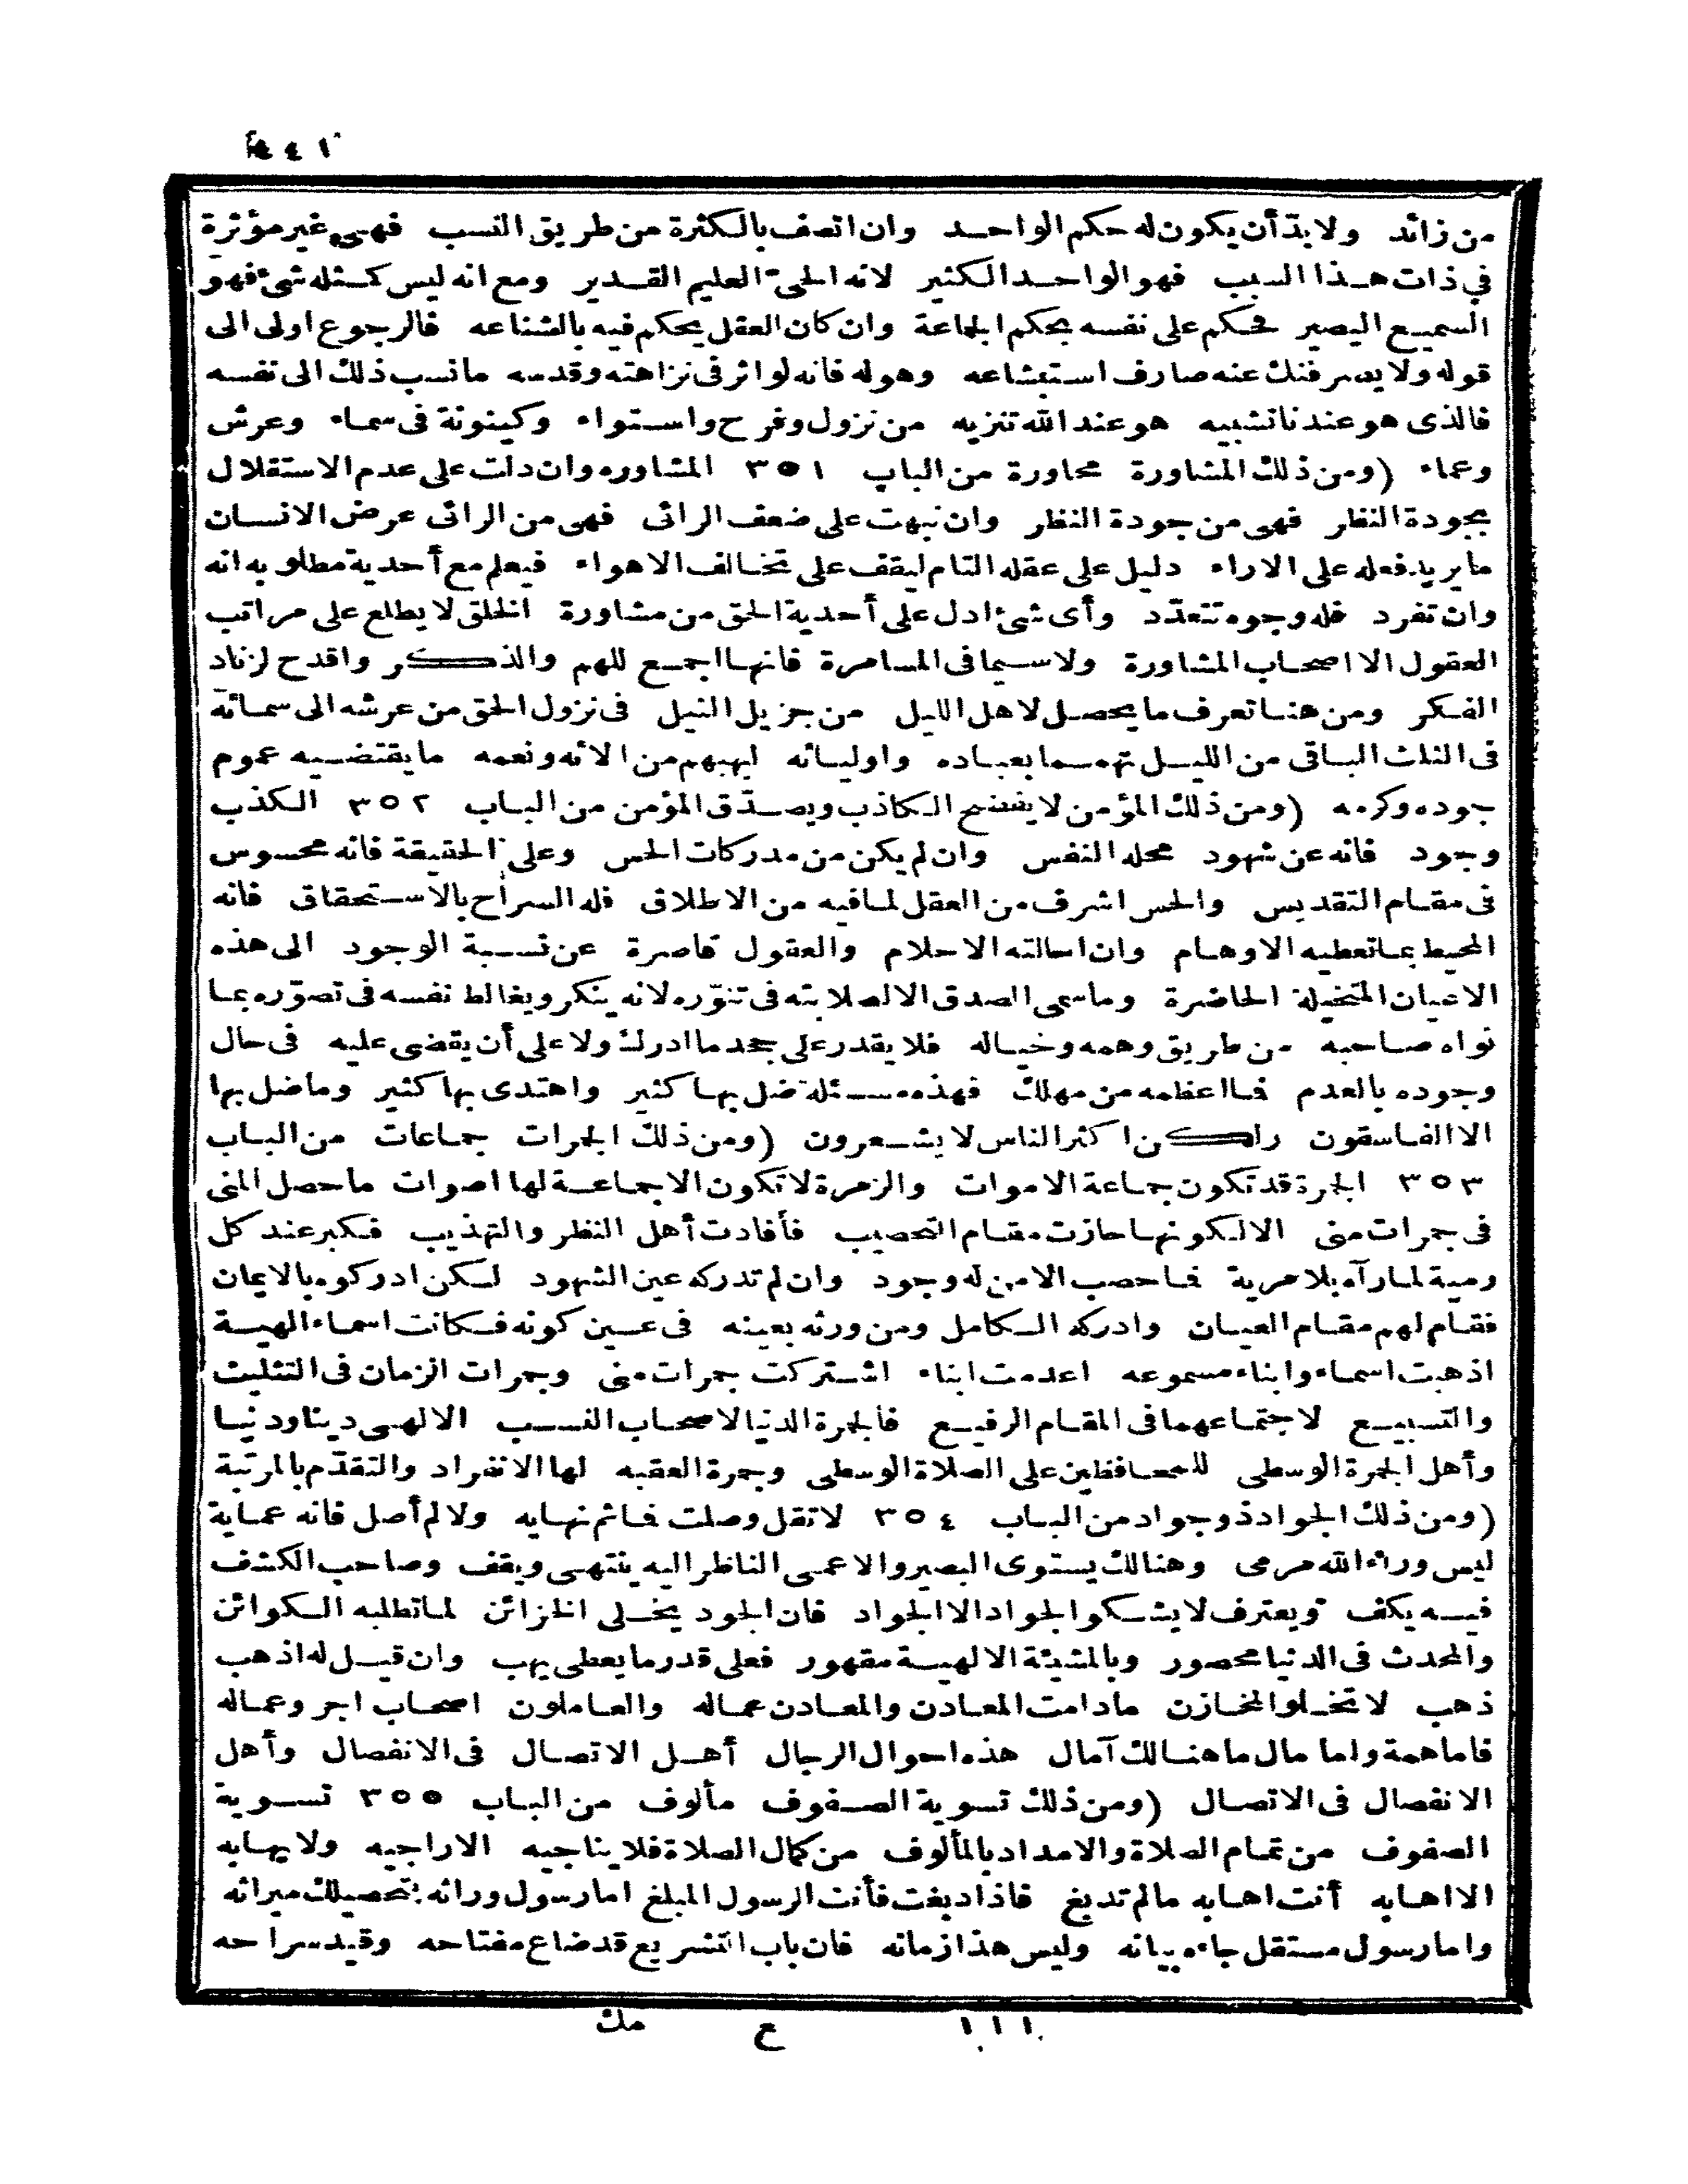 من زائد ولا بدّ أن يكون له حكم الواحد وان اتصف بالكثرة من طريق النسب فهى غير مؤثرة
فى ذات هذا السبب فهو الواحد الكثير لانه الحىّ العليم القدير ومع انه ليس كمثله شئ فهو
السميع البصير فحكم على نفسه بحكم الجماعة وان كان العقل يحكم فيه بالشناعه فالرجوع اولى الى
قوله ولا يصرفنك عنه صارف استبشاعه وهوله فانه لو اثر فى نزاهته وقدسه ما نسب ذلك الى نفسه
فالذى هو عندنا تشبيه هو عند الله تنزيه من نزول وفرح واستواء وكينونة فى سماء وعرش
وعماء (ومن ذلك المشاورة محاورة من الباب ٣٥١ المشاوره وان دلت على عدم الاستقلال
بجودة النظر فهى من جودة النظر وان نبهت على ضعف الرائى فهى من الرائى عرض الانسان
ما يريد فعله على الاراء دليل على عقله التام ليقف على تخالف الاهواء فيعلم مع أحدية مطلوبه انه
وان تفرد فله وجوه تتعدّد وأى شئ ادل على أحدية الحق من مشاورة الخلق لا يطلع على مراتب
العقول الا اصحاب المشاورة ولا سيما فى المسامرة فانها اجمع للهم والذكر واقدح لزناد
الفكر ومن هنا تعرف ما يحصل لاهل الليل من جزيل النيل فى نزول الحق من عرشه الى سمائه
فى الثلث الباقى من الليل تهمما بعباده واوليائه ليهبهم من الائه ونعمه ما يقتضيه عموم
جوده وكرمه (ومن ذلك المؤمن لا يفضح الكاذب ويصدّق المؤمن من الباب ٣٥٢ الكذب
وجود فانه عن شهود محله النفس وان لم يكن من مدركات الحس وعلى الحقيقة فانه محسوس
فى مقام التقديس والحس اشرف من العقل لما فيه من الاطلاق فله السراح بالاستحقاق فانه
المحيط بما تعطيه الاوهام وان احالته الاحلام والعقول قاصرة عن نسبة الوجود الى هذه
الاعيان المتخيلة الحاضرة وما سمى الصدق الا لصلابته فى تنوّره لانه ينكر ويغالط نفسه فى تصوّره بما
نواه صاحبه من طريق وهمه وخياله فلا يقدر على جحد ما ادرك ولا على أن يقضى عليه فى حال
وجوده بالعدم فما اعظمه من مهلك فهذه مسئلة ضل بها كثير واهتدى بها كثير وما ضل بها
الا الفاسقون ولكن اكثر الناس لا يشعرون (ومن ذلك الجمرات جماعات من الباب
٣٥٣ الجمرة قد تكون جماعة الاموات والزمرة لا تكون الا جماعة لها اصوات ما حصل المنى
فى جمرات منى الا لكونها حازت مقام التحصيب فأفادت أهل النظر والتهذيب فكبر عند كل
رمية لما رآه بلا مرية فما حصب الا من له وجود وان لم تدركه عين الشهود لكن ادركوه بالايمان
فقام لهم مقام العيان وادركه الكامل ومن ورثه بعينه فى عين كونه فكانت اسماء الهية
اذهبت اسماء وابناء مسموعه اعدمت ابناء اشتركت جمرات منى وجمرات الزمان فى التثليث
والتسبيع لاجتماعهما فى المقام الرفيع فالجمرة الدنيا لاصحاب النسب الالهى دينا ودنيا
وأهل الجمرة الوسطى للمحافظين على الصلاة الوسطى وجمرة العقبه لها الانفراد والتقدّم بالمرتبة
(ومن ذلك الجواد ذو جواد من الباب ٣٥٤ لا تقل وصلت فما ثم نهايه ولا لم أصل فانه عماية
ليس وراء الله مرمى وهنالك يستوى البصير والاعمى الناظر اليه ينتهى ويقف وصاحب الكشف
فيه يكف ويعترف لا يشكو الجواد الا الجواد فان الجود يخلى الخزائن لما تطلبه الكوائن
والمحدث فى الدنيا محصور وبالمشيئة الالهية مقهور فعلى قدر ما يعطى يهب وان قيل له اذهب
ذهب لا تخلو المخازن ما دامت المعادن والمعادن عماله والعاملون اصحاب اجر وعماله
فاما همة واما مال ما هنالك آمال هذه احوال الرجال أهل الاتصال فى الانفصال وأهل
الانفصال فى الاتصال (ومن ذلك تسوية الصفوف مألوف من الباب ٣٥٥ تسوية
الصفوف من تمام الصلاة والامداد بالمألوف من كمال الصلاة فلا يناجيه الا راجيه ولا يهابه
الا اهابه أنت اهابه ما لم تدبغ فاذا دبغت فأنت الرسول المبلغ اما رسول وراثه بتحصيلك ميراثه
واما رسول مستقل جاء ببيانه وليس هذا زمانه فان باب التشريع قد ضاع مفتاحه وقيد سراحه
١١١ ع مك